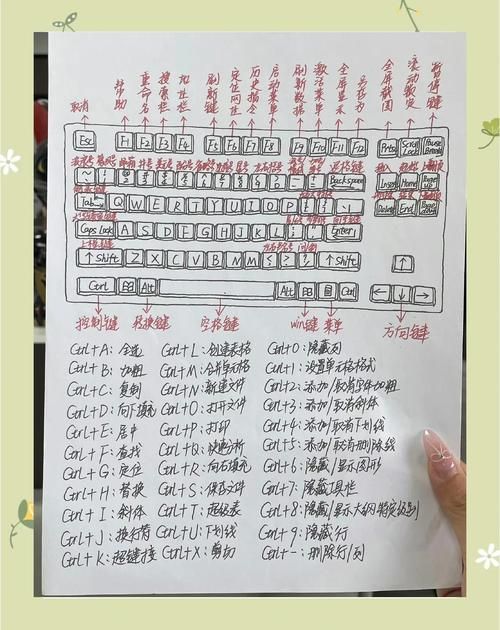 取消 帮助 重命名 搜索栏 地址栏 刷新键 定位网址 历史指令 启动菜单 刷新数据 激活菜单 全屏显示 另存为 全屏截图 滚动锁定 暂停键
Esc F1 F2 F3 F4 F5 F6 F7 F8 F9 F10 F11 F12 Prtsc Scroll Lock Pause Break
退格键
Backspace Insert Home Page up
Tab Q W E R T Y U I O P Delete End Page down
Caps Lock A S D F G H J K L Enter
↑Shift Z X C V B N M ↑Shift ↑
Ctrl Alt Alt Ctrl ← ↓ →
控制键 转换键 空格键 win键 菜单 方向键
Ctrl+A: 全选 Ctrl+L: 创建表格 Ctrl+0: 隐藏列
Ctrl+B: 加粗 Ctrl+M: 合并单元格 Ctrl+1: 设置单元格格式
Ctrl+C: 复制 Ctrl+N: 新建文件 Ctrl+2: 添加/取消字体加粗
Ctrl+D: 向下填充 Ctrl+O: 打开文件 Ctrl+3: 添加/取消斜体
Ctrl+E: 居中 Ctrl+P: 打印 Ctrl+4: 添加/取消下划线
Ctrl+F: 查找 Ctrl+Q: 快速分析 Ctrl+5: 添加/取消删除线
Ctrl+G: 定位 Ctrl+R: 向右填充 Ctrl+6: 隐藏/显示图形
Ctrl+H: 替换 Ctrl+S: 保存文件 Ctrl+7: 隐藏工具栏
Ctrl+I: 斜体 Ctrl+T: 超级表 Ctrl+8: 隐藏/显示大纲特定级别
Ctrl+J: 换行符 Ctrl+U: 下划线 Ctrl+9: 隐藏行
Ctrl+K: 超链接 Ctrl+X: 剪切 Ctrl+-: 删除行/列